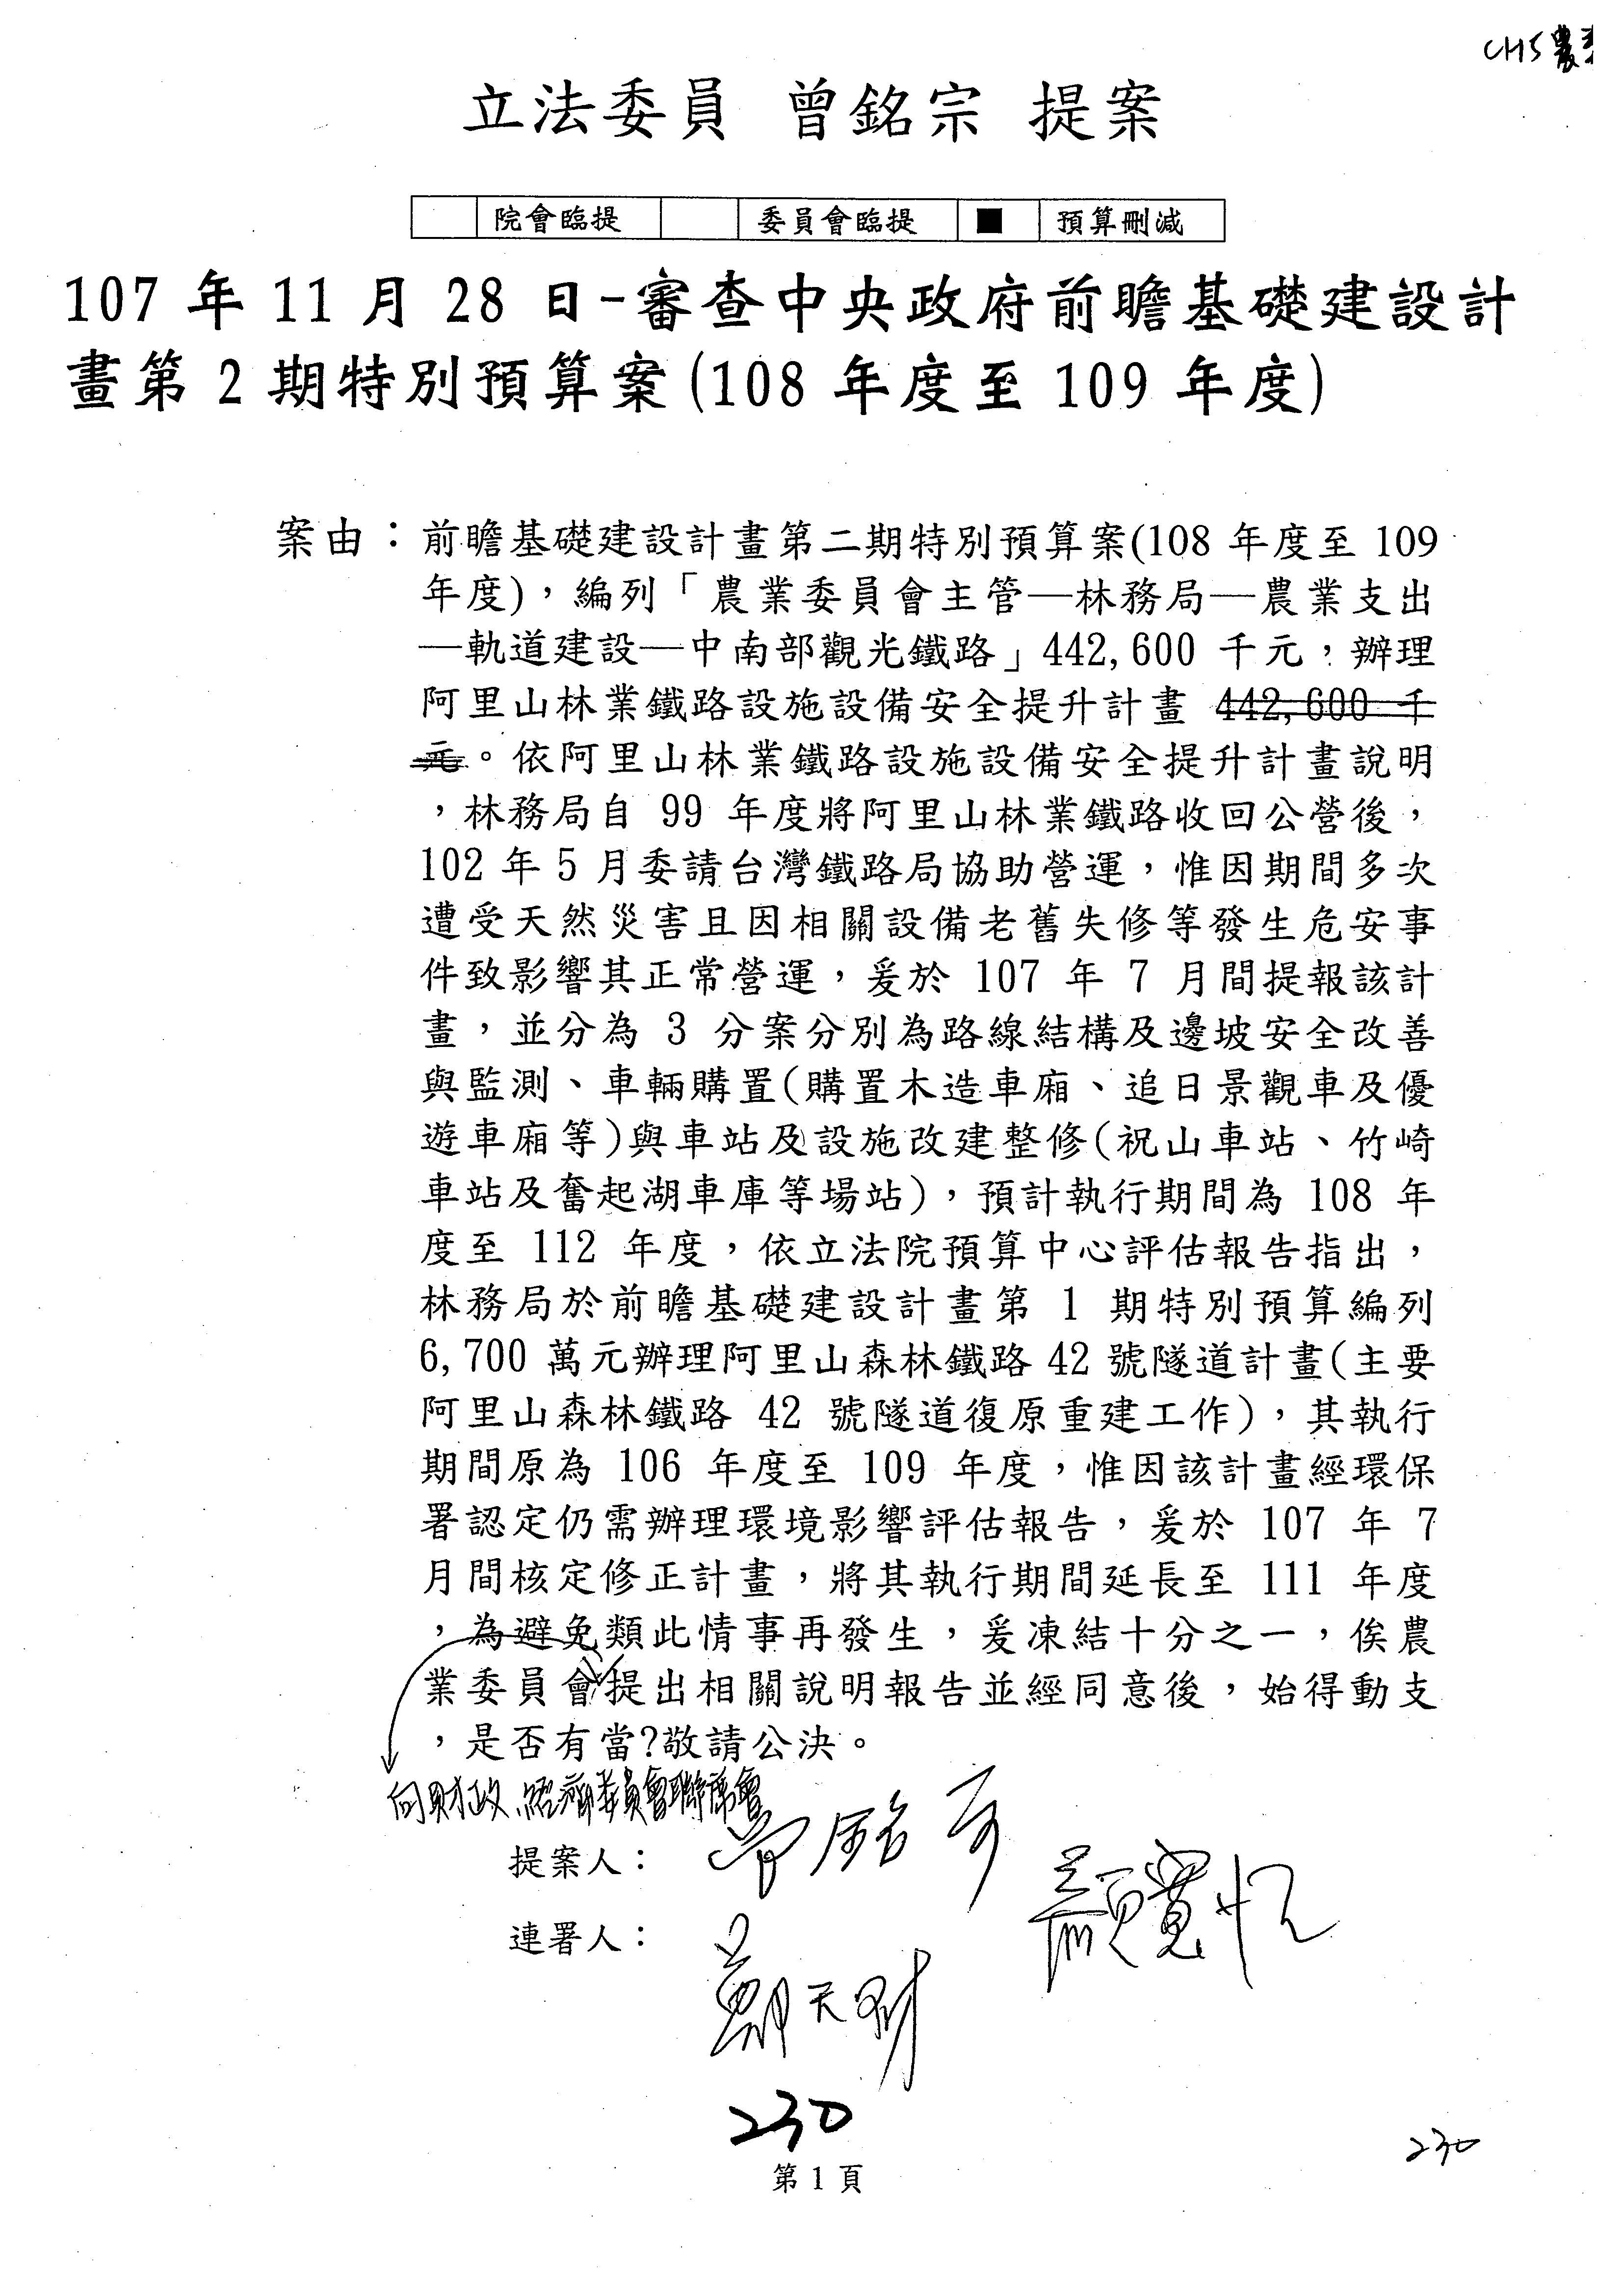 CH5農
立法委員 曾銘宗 提案
院會臨提 委員會臨提 ■ 預算刪減
107 年 11 月 28 日-審查中央政府前瞻基礎建設計
畫第 2 期特別預算案(108 年度至 109 年度)
案由：前瞻基礎建設計畫第二期特別預算案(108 年度至 109
年度)，編列「農業委員會主管—林務局—農業支出
—軌道建設—中南部觀光鐵路」442,600 千元，辦理
阿里山林業鐵路設施設備安全提升計畫 442,600 千
元。依阿里山林業鐵路設施設備安全提升計畫說明
，林務局自 99 年度將阿里山林業鐵路收回公營後，
102 年 5 月委請台灣鐵路局協助營運，惟因期間多次
遭受天然災害且因相關設備老舊失修等發生危安事
件致影響其正常營運，爰於 107 年 7 月間提報該計
畫，並分為 3 分案分別為路線結構及邊坡安全改善
與監測、車輛購置(購置木造車廂、追日景觀車及優
遊車廂等)與車站及設施改建整修(祝山車站、竹崎
車站及奮起湖車庫等場站)，預計執行期間為 108 年
度至 112 年度，依立法院預算中心評估報告指出，
林務局於前瞻基礎建設計畫第 1 期特別預算編列
6,700 萬元辦理阿里山森林鐵路 42 號隧道計畫(主要
阿里山森林鐵路 42 號隧道復原重建工作)，其執行
期間原為 106 年度至 109 年度，惟因該計畫經環保
署認定仍需辦理環境影響評估報告，爰於 107 年 7
月間核定修正計畫，將其執行期間延長至 111 年度
，為避免類此情事再發生，爰凍結十分之一，俟農
業委員會提出相關說明報告並經同意後，始得動支
，是否有當?敬請公決。
向財政、經濟委員會聯席會
提案人： 曾銘宗
顏寬恒
連署人：
鄭天財
230
230
第 1 頁